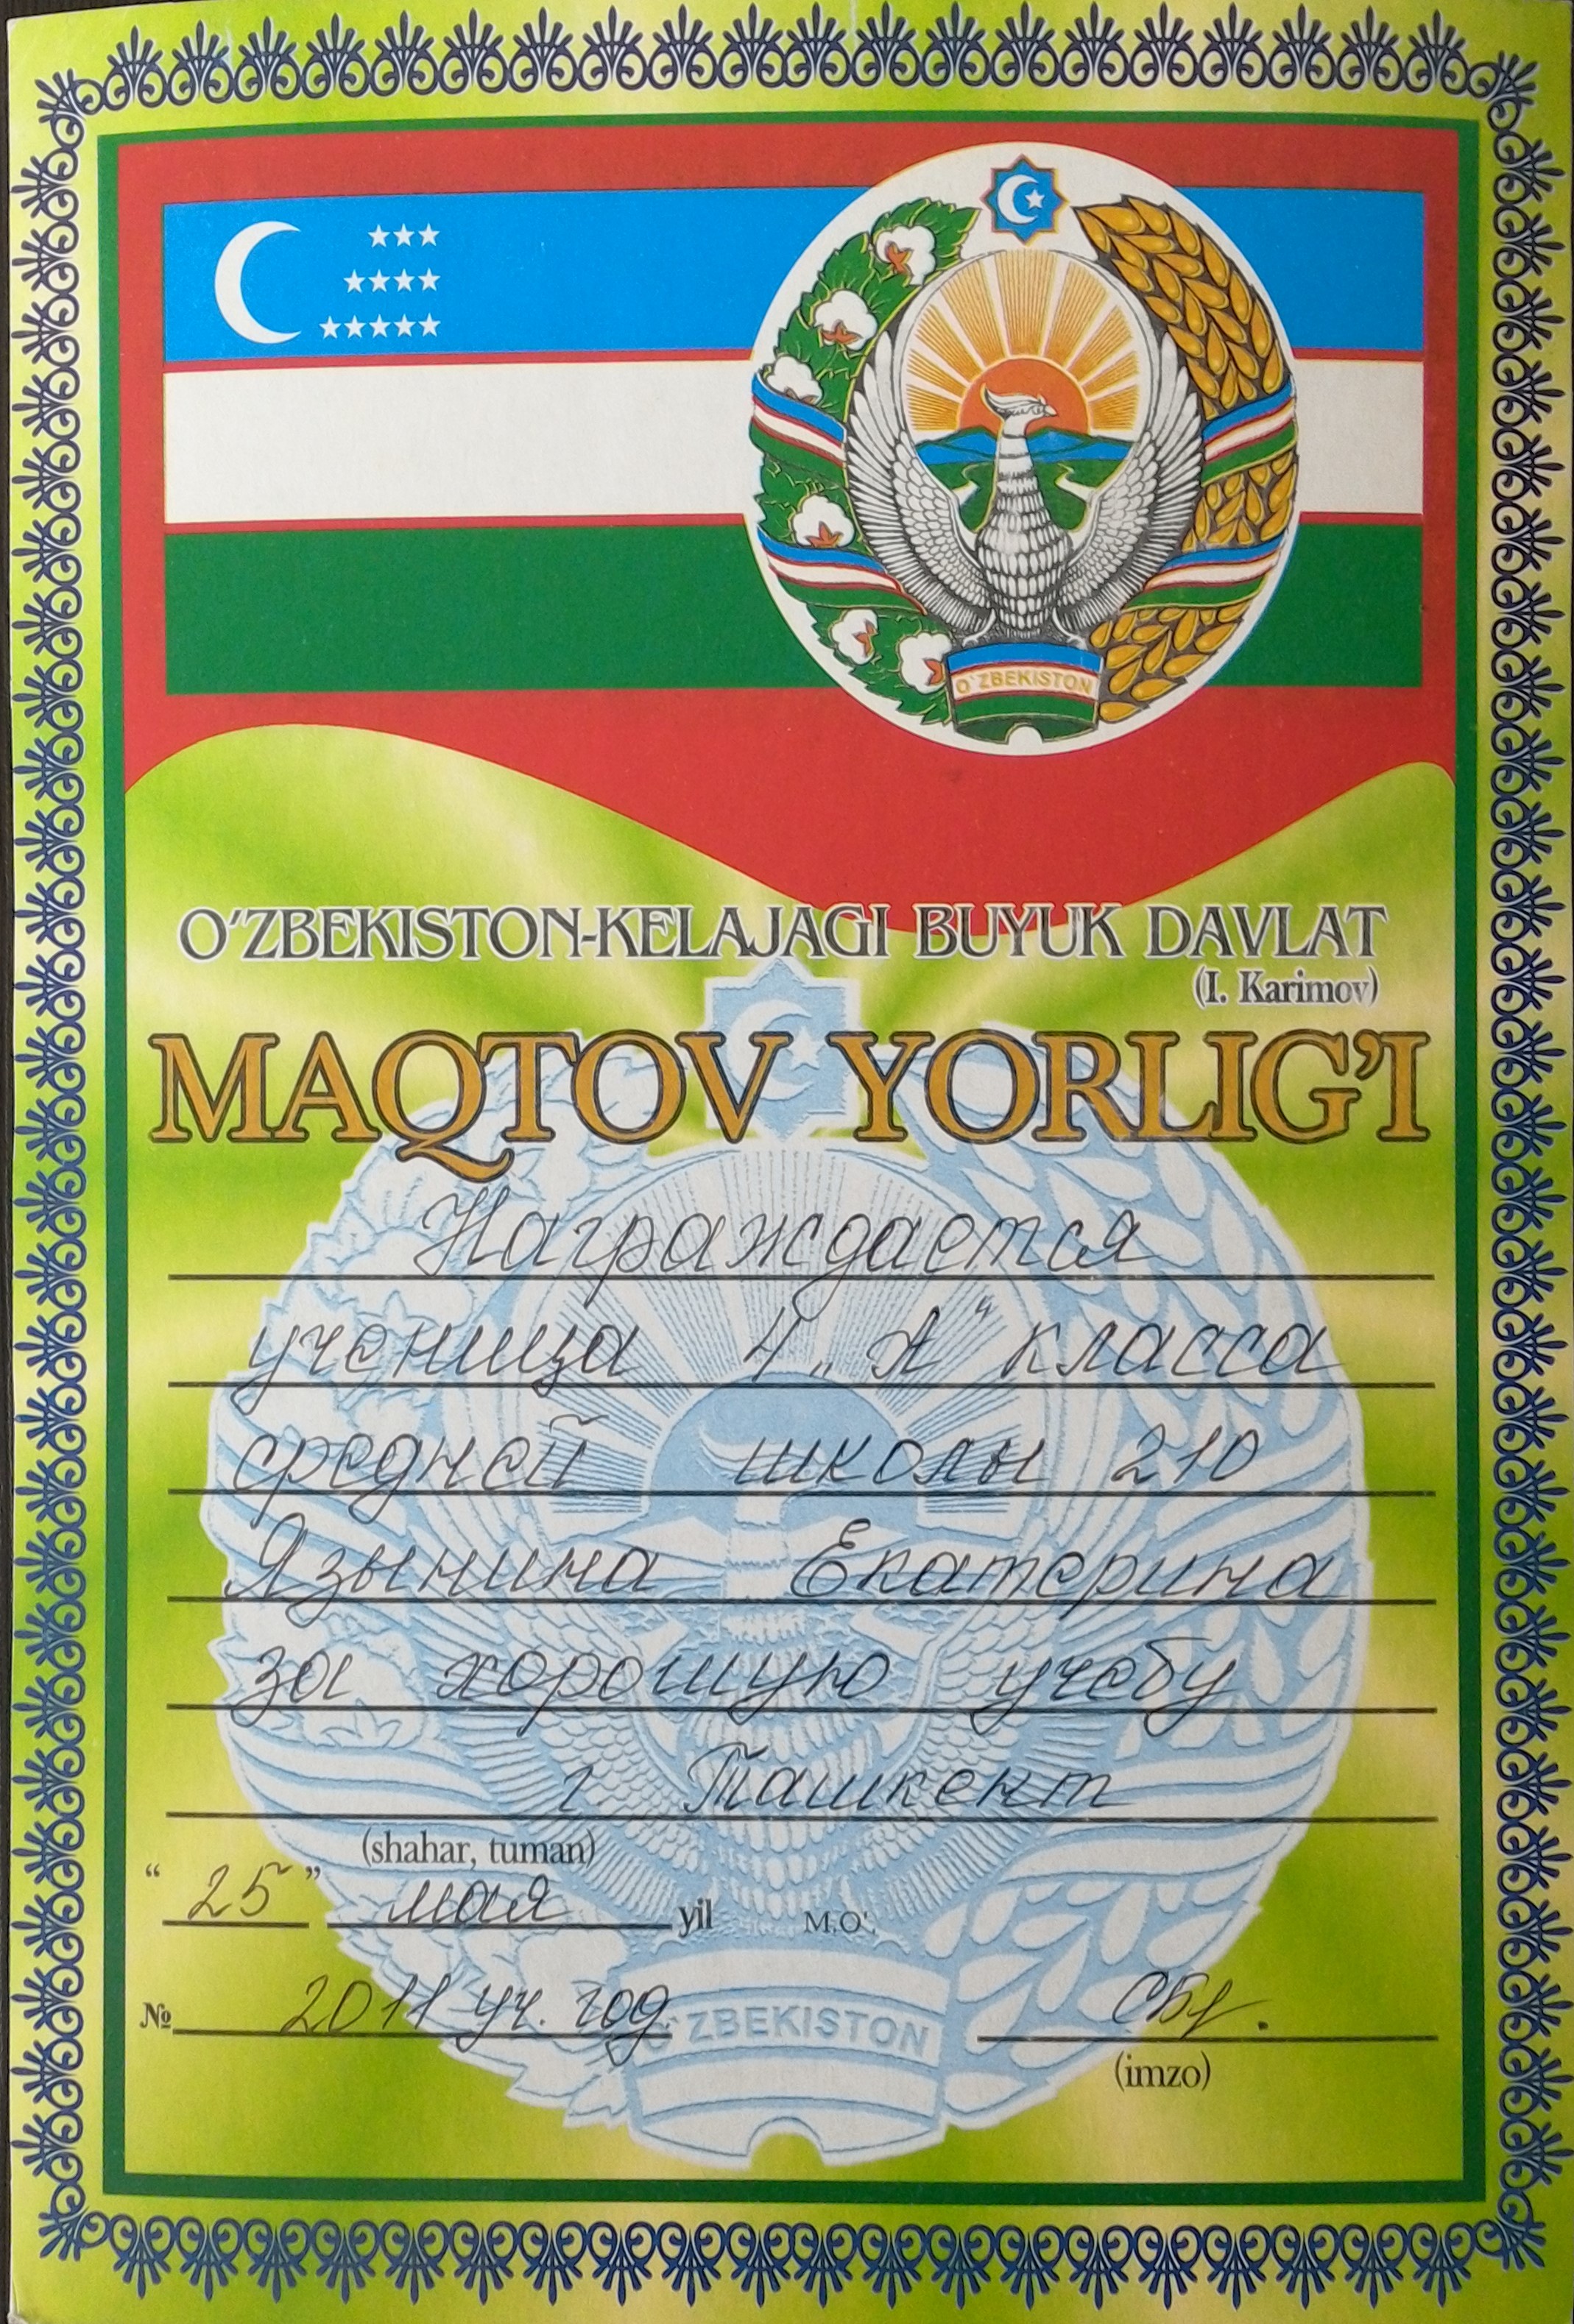 O`ZBEKISTON
O'ZBEKISTON-KELAJAGI BUYUK DAVLAT
(I. Karimov)
MAQTOV YORLIG'I
Награждается
ученица 4 „А“ класса
средней школы 210
Язынина Екатерина
за хорошую учебу
г Ташкент
(shahar, tuman)
“ 25 ” мая yil M.O'.
№ 2011 уч. год.
O`ZBEKISTON
(imzo)